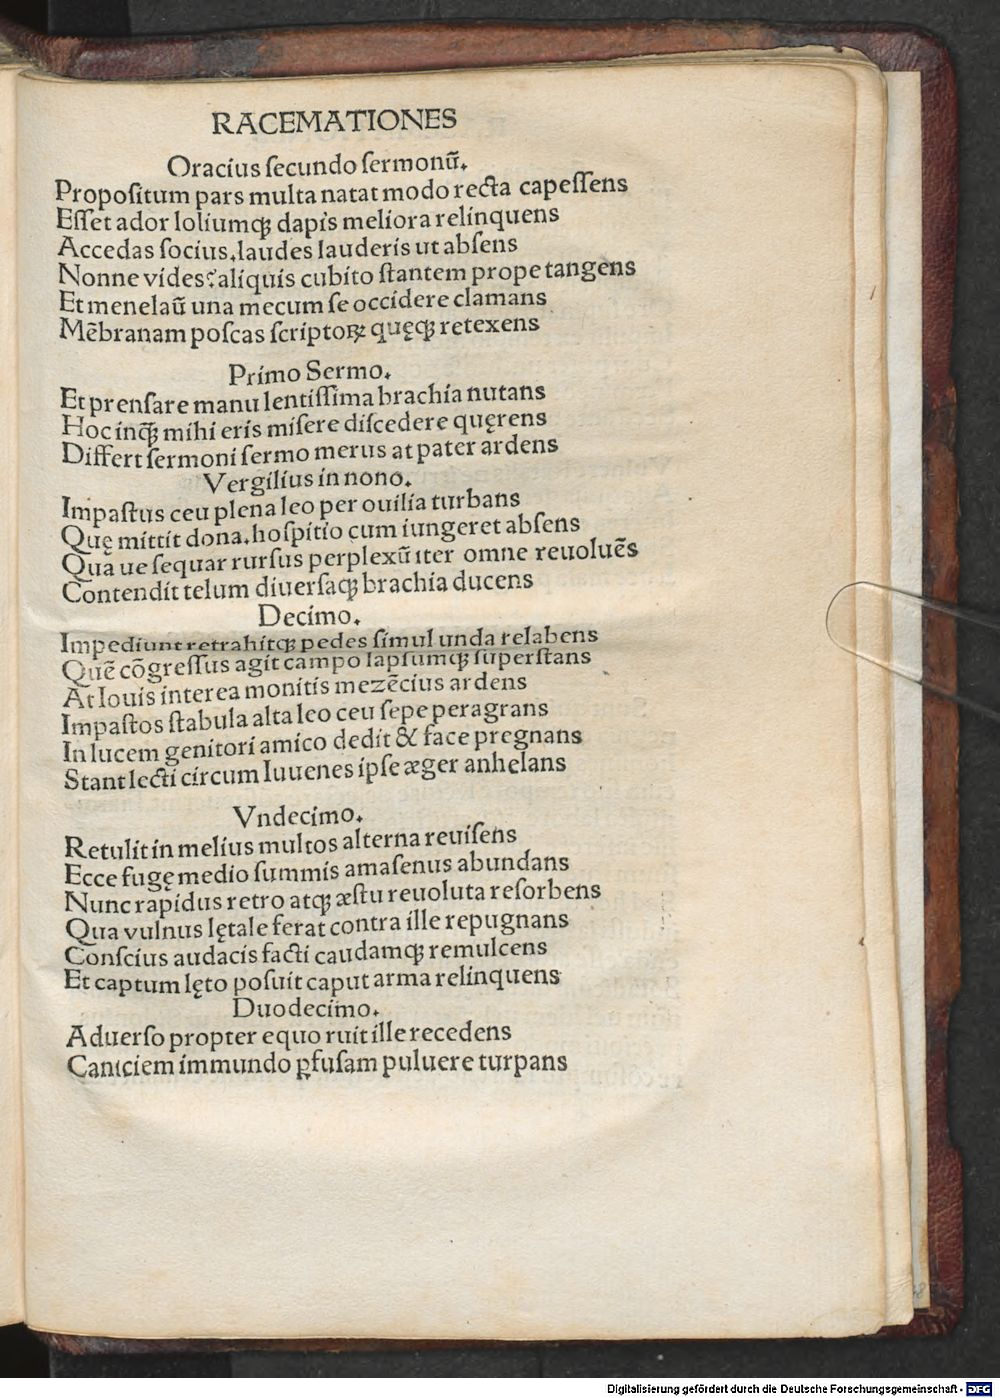 RACEMATIONES
Oracius ſecundo ſermonū.
Propoſitum pars multa natat modo recta capeſſens
Eſſet ador loliumqꝫ dapis meliora relinquens
Accedas ſocius.laudes lauderis ut abſens
Nonne vides?aliquis cubito ſtantem prope tangens
Et menelaū una mecum ſe occidere clamans
Mēbranam poſcas ſcriptoꝝ quęqꝫ retexens
Primo Sermo.
Et prenſare manu lentiſſima brachia nutans
Hoc inqꝫ mihi eris miſere diſcedere quęrens
Differt ſermoni ſermo merus at pater ardens
Vergilius in nono.
Impaſtus ceu plena leo per ouilia turbans
Quę mittit dona.hoſpitio cum iungeret abſens
Qua ue ſequar rurſus perplexū iter omne reuoluēs
Contendit telum diuerſaqꝫ brachia ducens
Decimo.
Impediunt retrahitqꝫ pedes ſimul unda relabens
Quē cōgreſſus agit campo lapſumqꝫ ſuperſtans
At Iouis interea monitis mezēcius ardens
Impaſtos ſtabula alta leo ceu ſepe peragrans
In lucem genitori amico dedit & face pregnans
Stant lecti circum Iuuenes ipſe æger anhelans
Vndecimo.
Retulit in melius multos alterna reuiſens
Ecce fugę medio ſummis amaſenus abundans
Nunc rapidus retro atqꝫ æſtu reuoluta reſorbens
Qua vulnus lętale ferat contra ille repugnans
Conſcius audacis facti caudamqꝫ remulcens
Et captum lęto poſuit caput arma relinquens
Duodecimo.
Aduerſo propter equo ruit ille recedens
Caniciem immundo ꝑfuſam puluere turpans
Digitalisierung gefördert durch die Deutsche Forschungsgemeinschaft - DFG